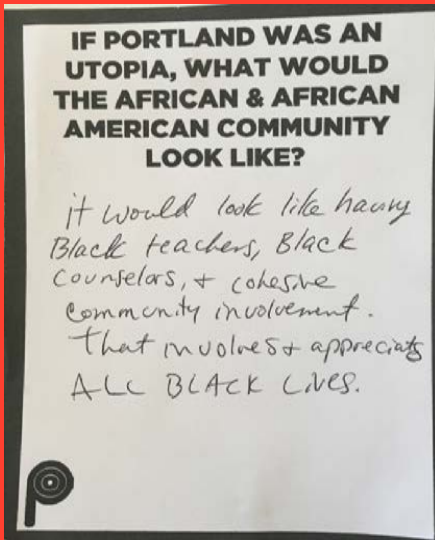 IF PORTLAND WAS AN
UTOPIA, WHAT WOULD
THE AFRICAN & AFRICAN
AMERICAN COMMUNITY
LOOK LIKE?
it would look like having
Black teachers, Black
Counselors, + cohesive
Community involvement.
that involves + appreciats
ALL BLACK LIVES.